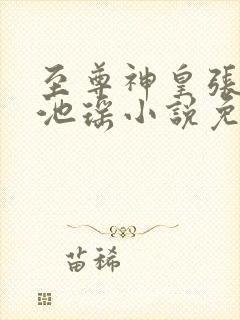 至尊神皇張
池瑤小說免
苗稀